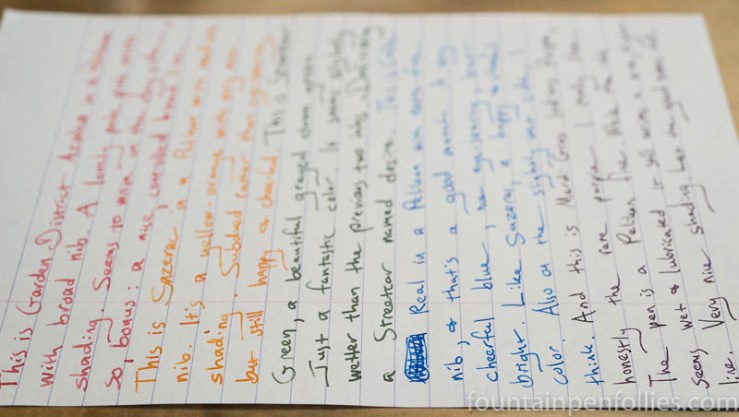 This is Garden District Azalea in a Pelikan
with broad nib. A lovely pink, pink with
shading. Seems to write on the dry side,
so, bonus: a nice, controlled broad line.
This is Sazerac in a Pelikan with medium
nib. It's a yellow-orange with very nice
shading. Subdued rather than eye-searing,
but still happy & cheerful. This is Streetcar
Green, a beautiful grayed down green.
Just a fantastic color. It seems slightly
wetter than the previous two inks. Definitely
a Streetcar named desire. This is Cote
Real in a Pelikan with extra fine
nib, & that's a good match. A very
cheerful blue, not eye-searing, but
bright. Like Sazerac, a happy &
color. Also on the slightly wet side, I
think. And this is Mardi Gras Indians Purple,
honestly the rare purple I really like.
The pen is a Pelikan fine. While the ink
seems wet & lubricated it still writes a
line. Very nice shading. Has the good
fountainpenfollies.com